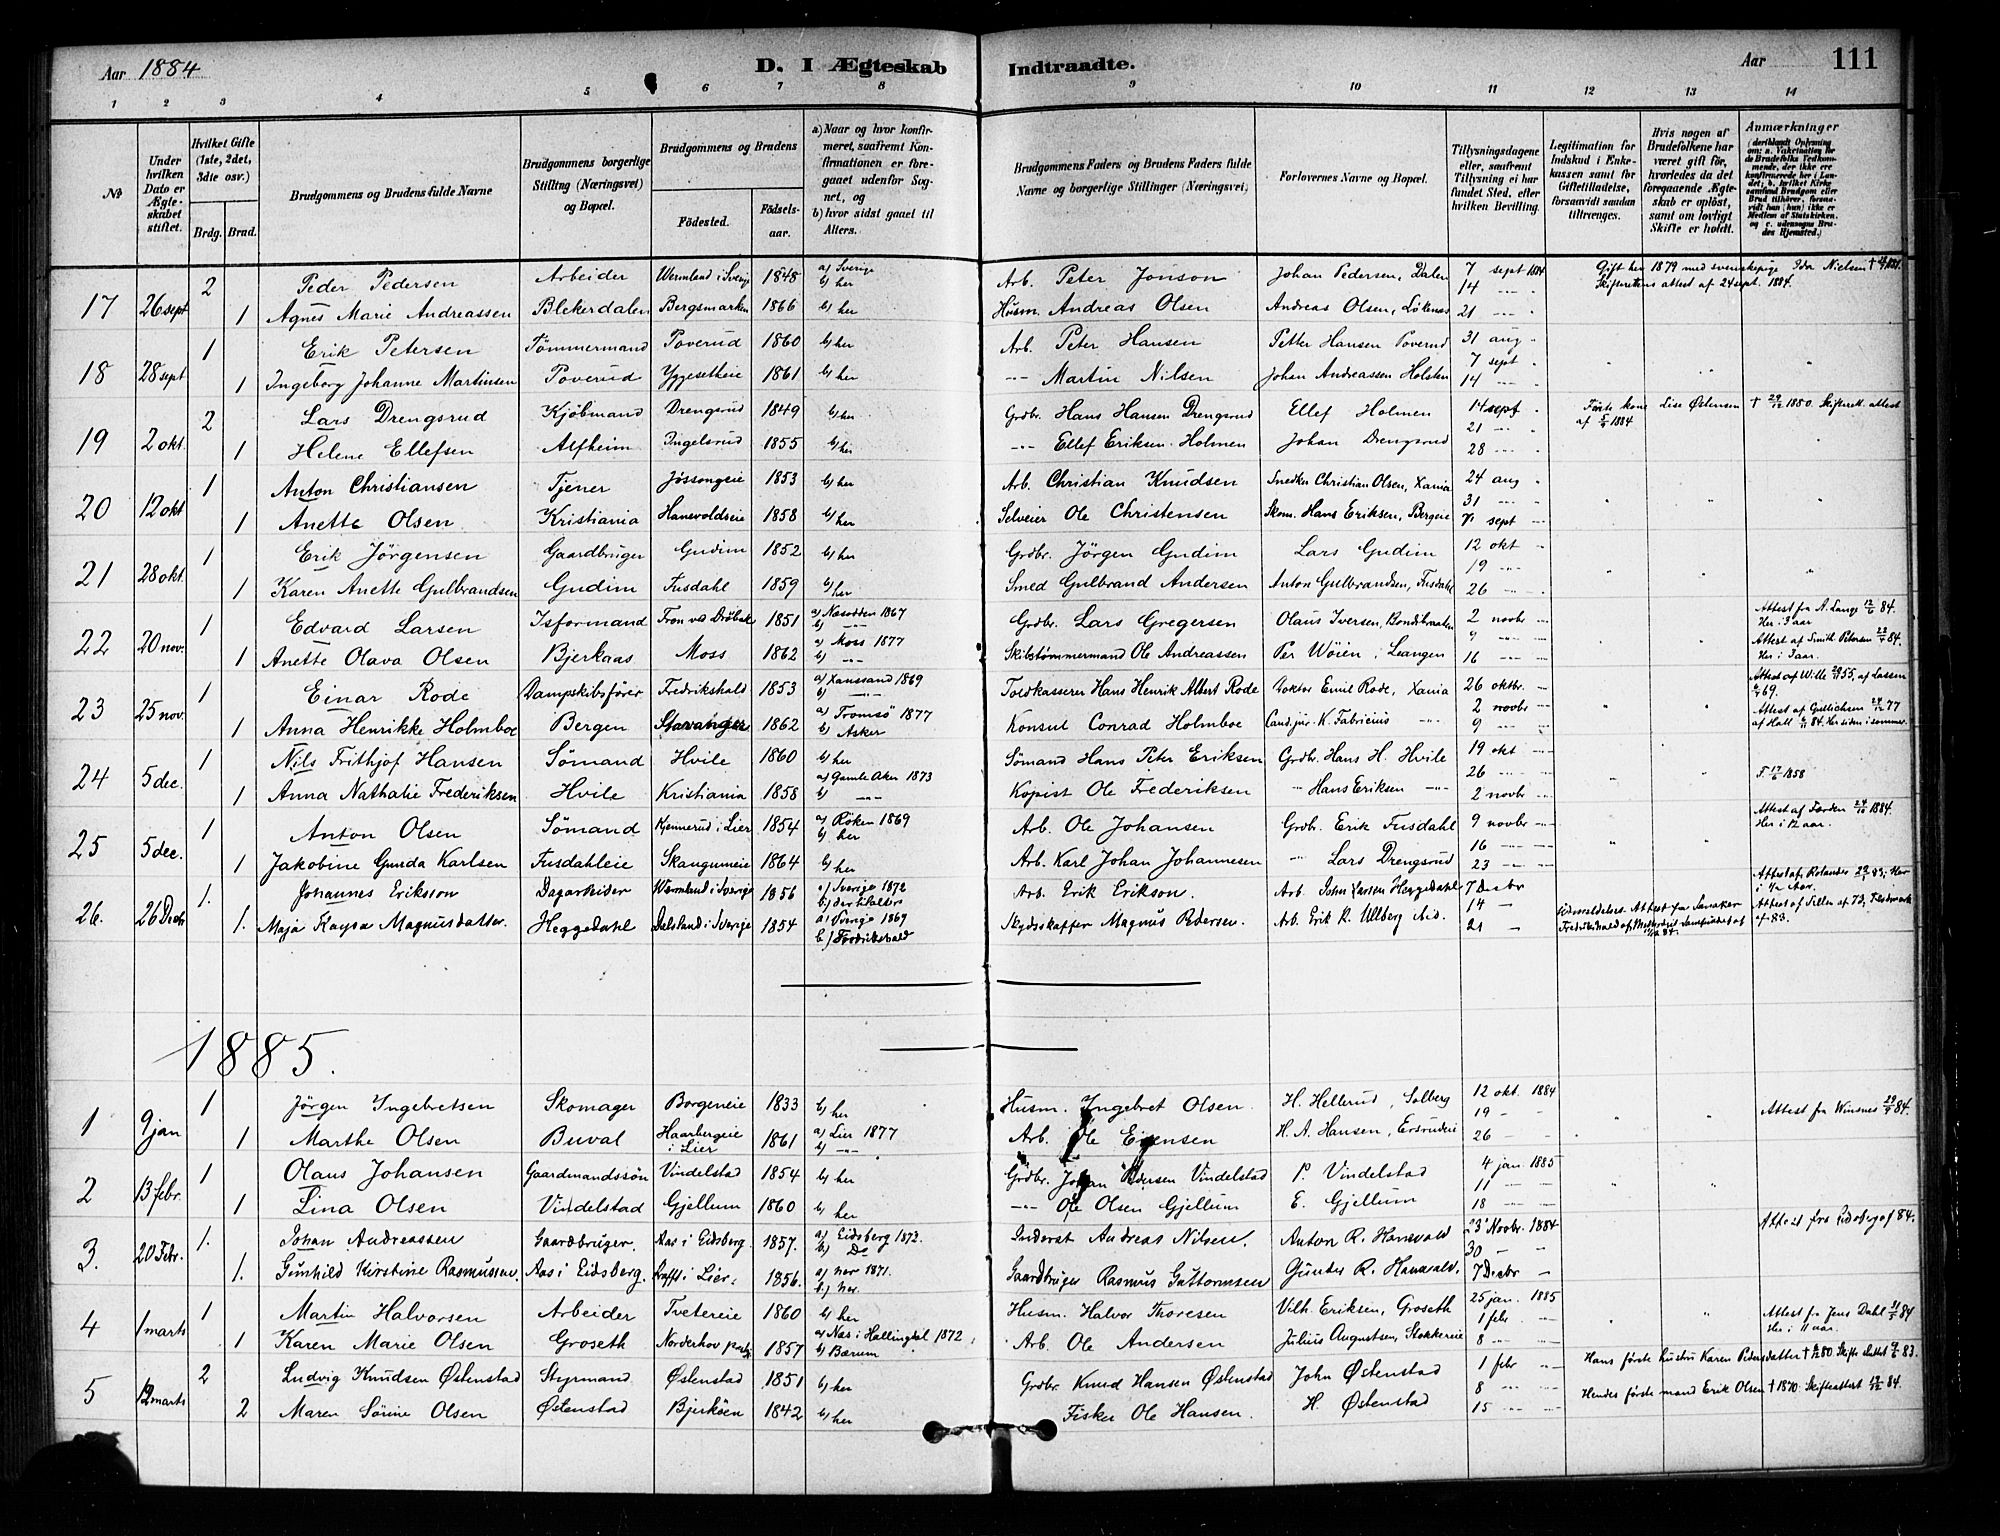 Aar 1884 D. I Ægteskab Indtraadte. Aar 111
1 2 3 4 5 6 7 8 9 10 11 12 13 14
No
Under hvilken Dato er Ægteskabet stiftet.
Hvilket Gifte (1ste, 2det, 3die osv.)
Brdg. Brud.
Brudgommens og Brudens fulde Navne
Brudgommens borgerlige Stilling (Næringsvei) og Bopæl.
Brudgommens og Brudens
Fødested. Fødselsaar.
a) Naar og hvor konfirmeret, saafremt Konfirmationen er foregaaet udenfor Sognet, og
b) hvor sidst gaaet til Alters.
Brudgommens Faders og Brudens Faders fulde Navne og borgerlige Stillinger (Næringsvei)
Forlovernes Navne og Bopæl.
Tillysningsdagene eller, saafremt Tillysning ei har fundet Sted, efter hvilken Bevilling.
Legitimation for Indskud i Enkekassen samt for Giftetilladelse, forsaavidt saadan tiltrænges.
Hvis nogen af Brudefolkene har været gift før, hvorledes da det foregaaende Ægteskab er opløst, samt om lovligt Skifte er holdt.
Anmærkninger (deriblandt Oplysning om: a. Vakcination for de Brudefolks Vedkommende, der ikke ere konfirmerede her i Landet; b. hvilket Kirkesamfund Brudgom eller Brud tilhører, forsaavidt han (hun) ikke er Medlem af Statskirken, og c. udensogns Brudes Hjemsted.)
17 26 sept 2 Peder Pedersen Arbeider Wermland i Sverige 1848 a) Sverige b) her Arb. Peter Jonson Johan Pedersen, Dalen 7 sept 1884 Gift her 1879 med svenskepige Ida Nielsen †
1 Agnes Marie Andreassen Blekerdalen Bergsmarken 1866 b) her Husm. Andreas Olsen Andreas Olsen, Løkenes 14 21 Skifterettens attest af 24 sept. 1884.
18 28 sept 1 Erik Petersen Tømmermand Poverud 1860 b) her Arb. Peter Hansen Petter Hansen Poverud 31 aug
1 Ingeborg Johanne Martinsen Poverud Yggesetheie 1861 b) her Martin Nilsen Johan Andreassen Holsten 7 sept 14
19 2 okt. 2 Lars Drengsrud Kjöbmand Drengsrud 1849 b) her Grdbr. Hans Hansen Drengsrud Ellef Holmen 14 sept Förte kone Lise Østensen † 29/12 1880. Skifterett. attest
1 Helene Ellefsen Alfheim Ingelsrud 1855 b) her Ellef Eriksen Holmen Johan Drengsrud 21 28 af 5/9 1884
20 12 okt 1 Anton Christiansen Tjener Jössongeie 1853 b) her Arb. Christian Knudsen Snedker Christian Olsen, Xania 24 aug
1 Anette Olsen Kristiania Hanevoldseie 1858 b) her Selveier Ole Christensen Skom. Hans Eriksen, Bergeie 31 7 sept
21 28 okt. 1 Erik Jörgensen Gaardbruger Gudim 1852 b) her Grdbr. Jörgen Gudim Lars Gudim 12 okt
1 Karen Anette Gulbrandsen Gudim Fusdahl 1859 b) her Smed Gulbrand Andersen Anton Gulbrandsen, Fusdahl 19 26
22 20 nov. 1 Edvard Larsen Isformand Fron v/s Dröbak 1851 a) Næsodden 1867 b) Grdbr. Lars Gregersen Olaus Iversen, Bondibraaten 2 novbr Attest fra A. Lange 12/6 84. Her i 3 aar
1 Anette Olava Olsen Bjerkaas Moss 1862 a) Moss 1877 b) Skibstømmermand Ole Andreassen Per Wöien, Leangen 9 16 Attest af Smith Petersen 84. Her i 3 aar.
23 25 nov. 1 Einar Rode Dampskibsfører Fredrikshald 1853 a) Xanssand 1869 b) Toldkasserer Hans Henrik Albert Rode Doktor Emil Rode, Xania 26 oktbr. Attest af Wille 55, af Lassen 69.
1 Anna Henrikke Holmboe Bergen Stavanger 1862 a) Tromsö 1877 b) Asker Konsul Conrad Holmboe Cand. jur. K. Fabricius 2 novbr 9 Attest af 77 af Hall 84. Her siden i sommer.
24 5 dec. 1 Nils Frithjof Hansen Sömand Hvile 1860 b) her Sömand Hans Peter Eriksen Grdbr. Hans H. Hvile 19 okt
1 Anna Nathalie Frederiksen Hvile Kristiania 1858 a) Gamle Aker 1873 b) Kopist Ole Frederiksen " Hans Eriksen 26 2 novbr F. 17/6 1858
25 5 dec. 1 Anton Olsen Sömand Kjennerud i Lier 1854 a) Röken 1869 b) her Arb. Ole Johansen Grdb. Erik Fusdahl 9 novbr Attest af Forden 1884. Her i 12 aar.
1 Jakobine Gunda Karlsen Fusdahleie Skangumeie 1864 b) her Arb. Karl Johan Johannesen " Lars Drengsrud 16 23
26. 26 Decbr 1. Johannes Eriksson Dagarbeider Wermland i Sverige 1856 a) Sverige 1872 Arb. Erik Erikson. Arb. John Larsen Heggedahl 7 Decbr
1. Maja Kaysa Magnusdatter. Heggedahl Dalsland i Sverige 1854 a) Sverige 1869 b) Fredrikshald Skydsskaffer Magnus Pedersen. Arb. Erik R. Ullberg 14 21
1885.
1 9 jan 1 Jörgen Ingebretsen Skomager Borgeneie 1833 b) her Husm. Ingebret Olsen H. Hellerud, Solberg 12 okt. 1884 Attest fra Winsnes 84.
1 Marthe Olsen Buval Haarbergeie i Lier 1861 a) Lier 1877 b) Arb. Ole H. A. Hansen, Ersrudeie 19 26
2 13 febr. 1 Olaus Johansen Gaardmandssön Vindelstad 1854 b) her Grdbr. Johan Pedersen Vindelstad P. Vindelstad 4 jan. 1885
1 Lina Olsen Vindelstad Gjellum 1860 b) her Ole Olsen Gjellum E. Gjellum 11 18
3. 20 Febr. 1. Johan Andreassen Gaardbruger. Aas i Eidsberg. 1857. a) Eidsberg 1872. b) Do Inderst Andreas Nilsen. Anton R. Hanevald 23 Novbr. 1884 Attest fra Eidsberg af 84.
1. Gunhild Kirstine Rasmussen. Aas i Eidsberg. Trafft i Lier. 1856. a) her 1871. b.) her. Gaardbruger Rasmus Guttormsen Gunder R. Hanevald. 30 7 Decbr
4 1 marts 1 Martin Halvorsen Arbeider Tvetereie 1860 b) her Husm. Halvor Thoresen Vilh. Eriksen, Groseth 25 jan. 1885 Attest fra Jens Dahl 84 Her i 11 aar.
1 Karen Marie Olsen Groseth Norderhov 1857 a) Nas i Hallingdal 1872 b) Bærum Arb. Ole Andersen Julius Augustsen, Stokkereie 1 febr 8
5 12 marts 2 Ludvig Knudsen Østenstad Styrmand Østenstad 1851 b) her Grdbr. Knud Hansen Østenstad John Østenstad 1 febr Hans förste hustru Karen Pedersdatter † 80 Skifte sluttet 83.
2 Maren Sörine Olsen Østenstad Bjerköen 1842 b) her Fisker Ole Hansen. H. Østenstad 8 15 Hendes förste mand Erik Olsen † 1870. Skifteattest 84.